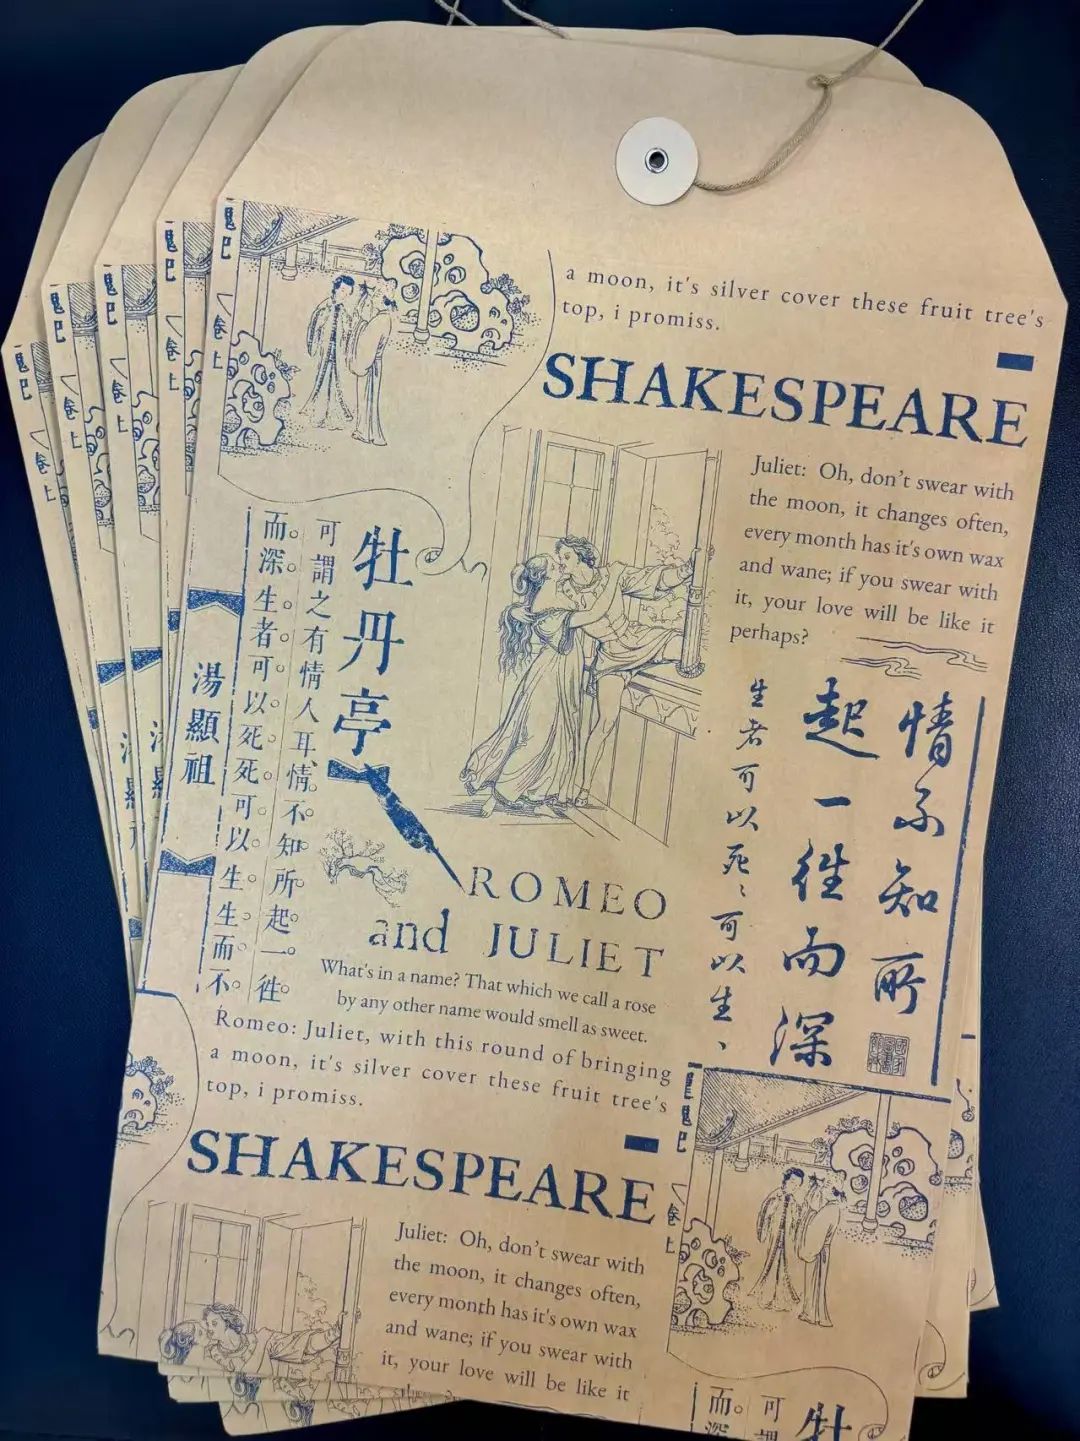 a moon, it's silver cover these fruit tree's
top, i promiss.
SHAKESPEARE
Juliet: Oh, don't swear with
the moon, it changes often,
every month has it's own wax
and wane; if you swear with
it, your love will be like it
perhaps?
卷上
牡丹亭
可謂之有情人耳情不知所起一往
而深生者可以死死可以生生而不
湯顯祖
情不知所
起一往而深
生者可以死、可以生、
ROMEO
and JULIET
What's in a name? That which we call a rose
by any other name would smell as sweet.
Romeo: Juliet, with this round of bringing
a moon, it's silver cover these fruit tree's
top, i promiss.
SHAKESPEARE
Juliet: Oh, don't swear with
the moon, it changes often,
every month has it's own wax
and wane; if you swear with
it, your love will be like it
卷上
牡
可謂
而深
卷上
卷上
卷上
卷上
湯顯
湯顯